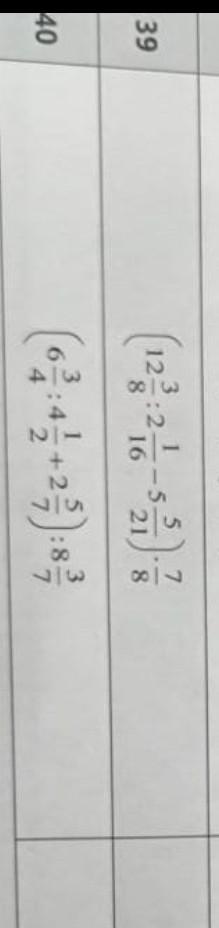 39 (12 3/8 : 2 1/16 − 5 5/21) · 7/8
40 (6 3/4 : 4 1/2 + 2 5/7) : 8 3/7